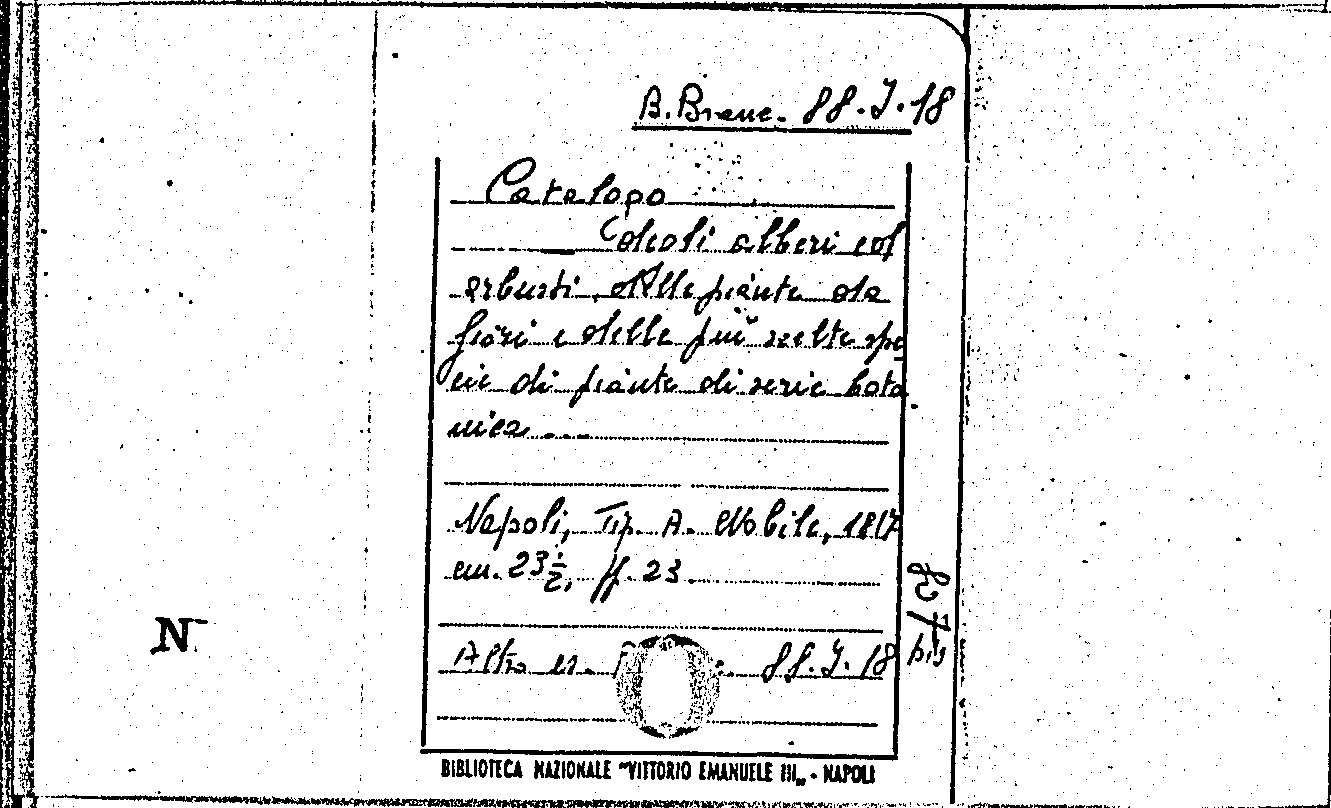 B. Branc. 88. J. 18
Catalogo
degli alberi ed
arbusti, delle piante da
fiori e delle più scelte spe
cie di piante di serie bota
nica ...
Napoli, Tip. A. Nobile, 1817
cm. 23½, ff. 23.
Altro es. 88. J. 18
bis
N
BIBLIOTECA NAZIONALE "VITTORIO EMANUELE III„ - NAPOLI